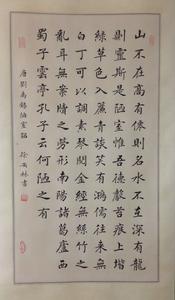 山不在高有僊則名水不在深有龍
則靈斯是陋室惟吾德馨苔痕上堦
綠草色入簾青談笑有鴻儒往來無
白丁可以調素琴閱金經無絲竹之
亂耳無案牘之勞形南陽諸葛廬西
蜀子雲亭孔子云何陋之有
唐劉禹錫陋室銘 徐 書